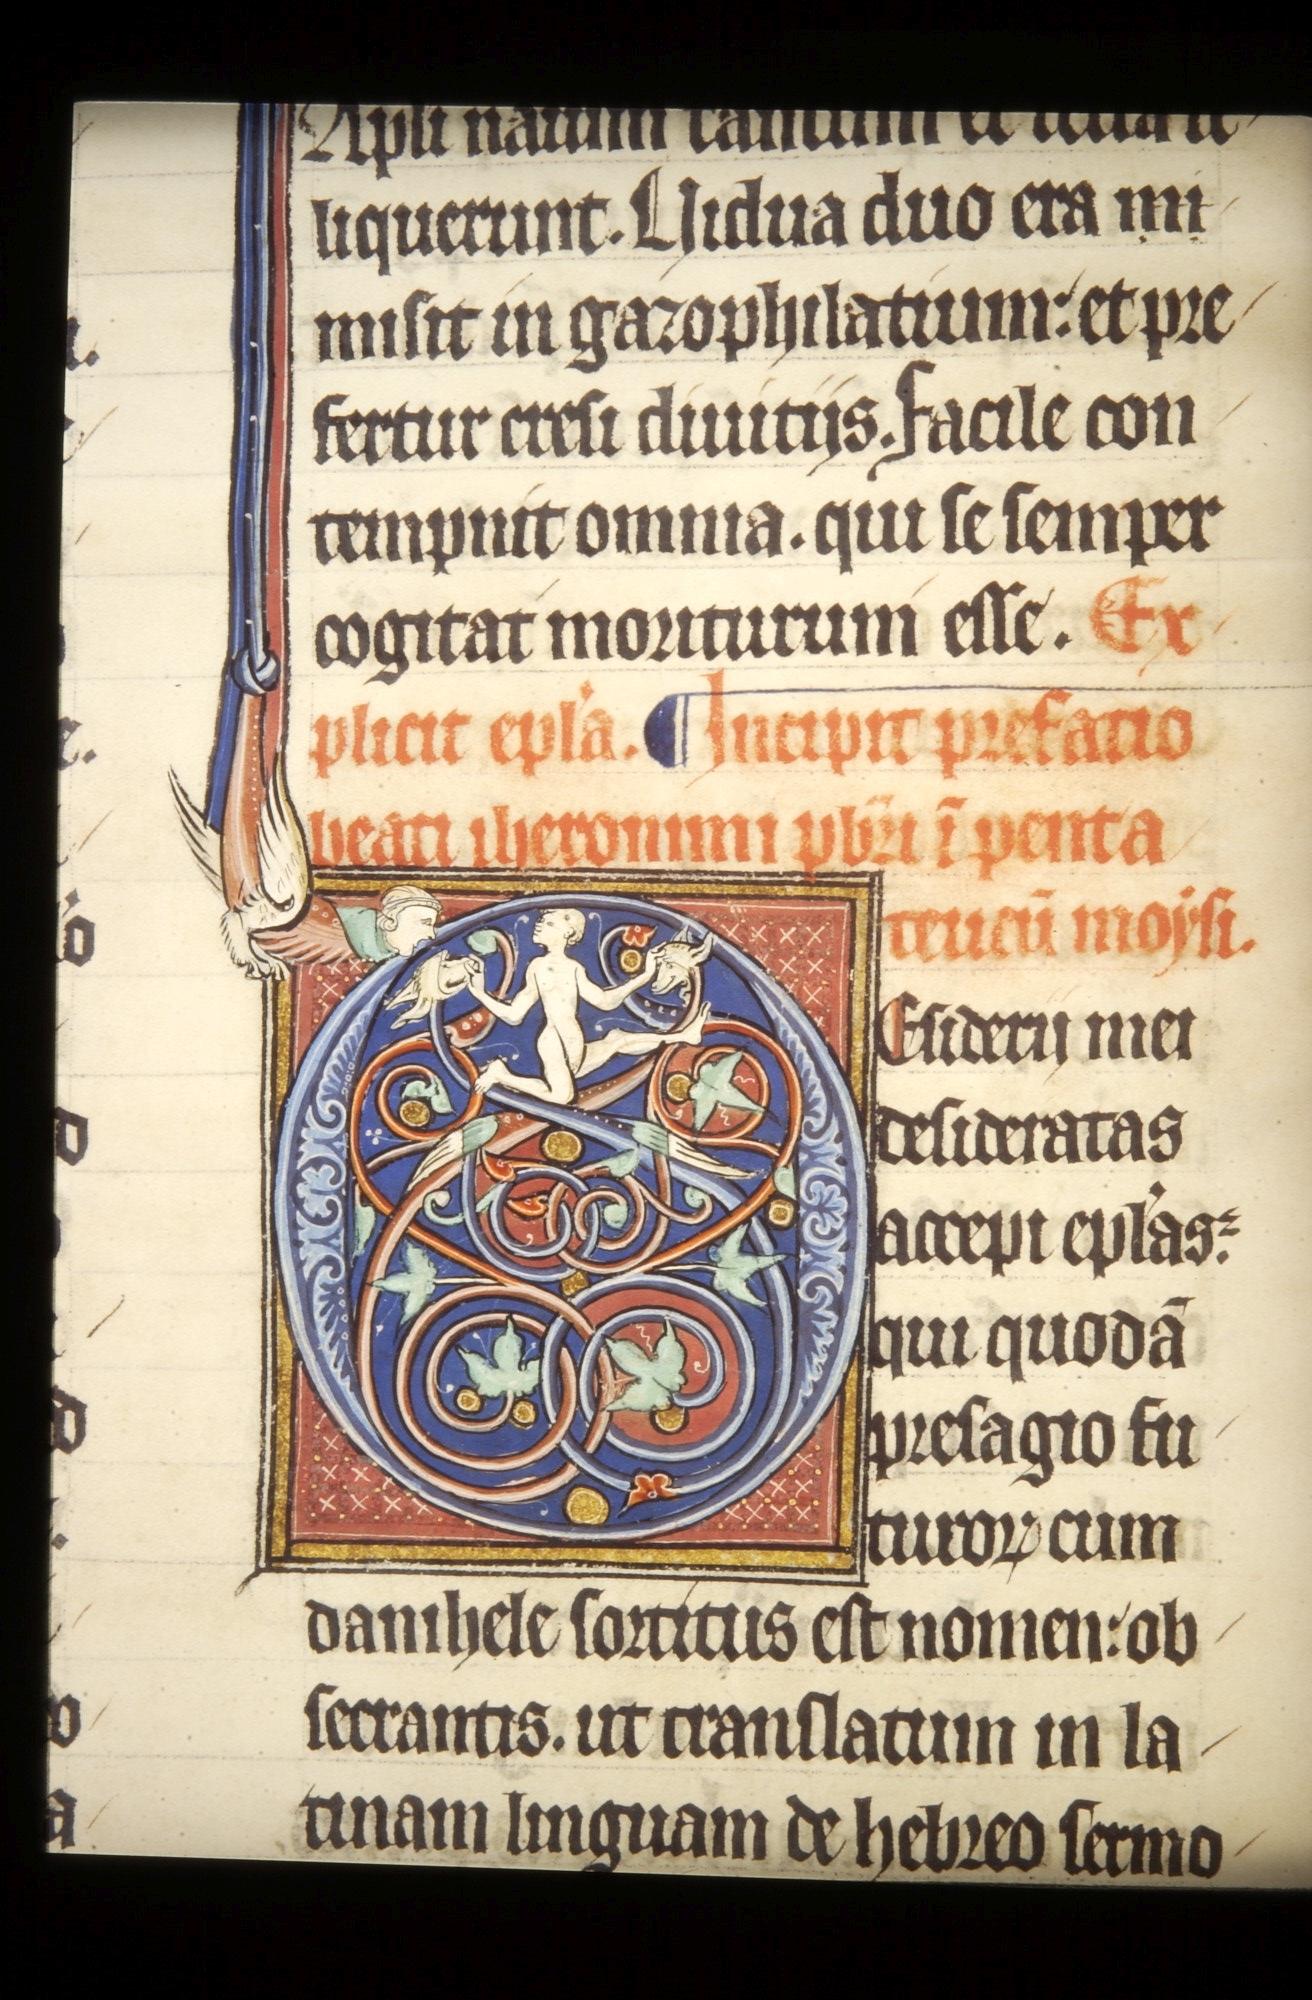 Apli nauim tantum et retia re
liquerunt. Vidua duo era mi
nuta misit in gazophilatium: et pre
fertur cresi diuitijs. Facile con
tempnit omnia. qui se semper
cogitat moriturum esse. Ex
plicit epl'a. ¶ Incipit prefatio
beati iheronimi pb̄ri ī penta
teucū moysi.
Esiderij mei
desideratas
accepi epl'as:
qui quodā
presagio fu
turoꝝ cum
danihele sortitus est nomen: ob
secrantis. ut translatum in la
tinam linguam de hebreo sermo